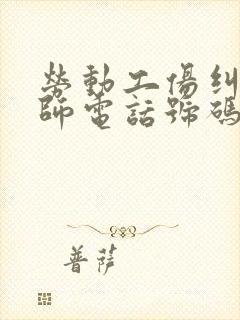 勞動工傷糾
師電話號碼
普薩